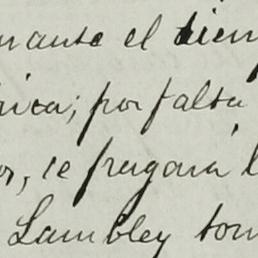 mante el tiem
rica; por falta
or, se fragará l
Lambley tom